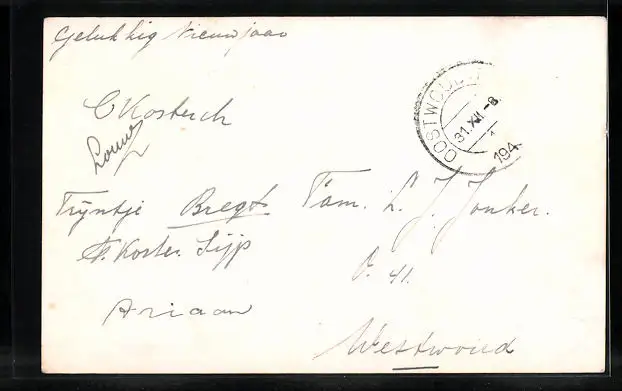 Gelukkig Nieuwjaar
C Kosterch
Louw
Tryntje Bregt
A. Koster. Sijp
Ariaan
OOSTWOUD
31.XII.-8
194
Fam. L. J. Jonker.
O. 41.
Westwoud